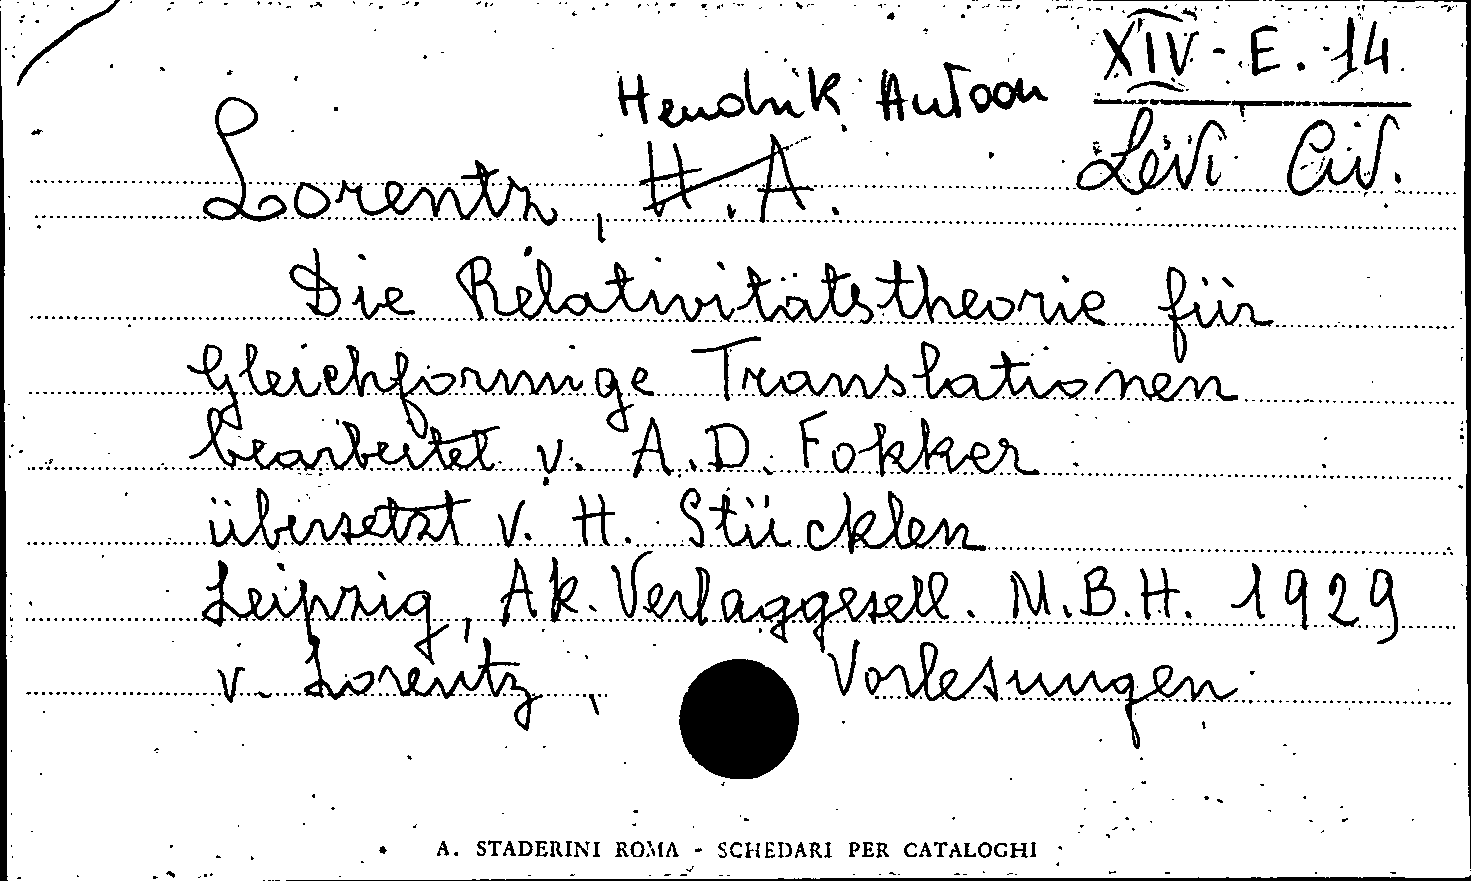 XIV - E. 14
Hendrik Antoon
Levi Civ.
Lorentz, H. A.
Die Relativitätstheorie für
gleichformige Translationen
bearbeitet v. A. D. Fokker
übersetzt v. H. Stücklen
Leipzig, Ak. Verlaggesell. M.B.H. 1929
v. Lorentz, Vorlesungen
A. STADERINI ROMA - SCHEDARI PER CATALOGHI